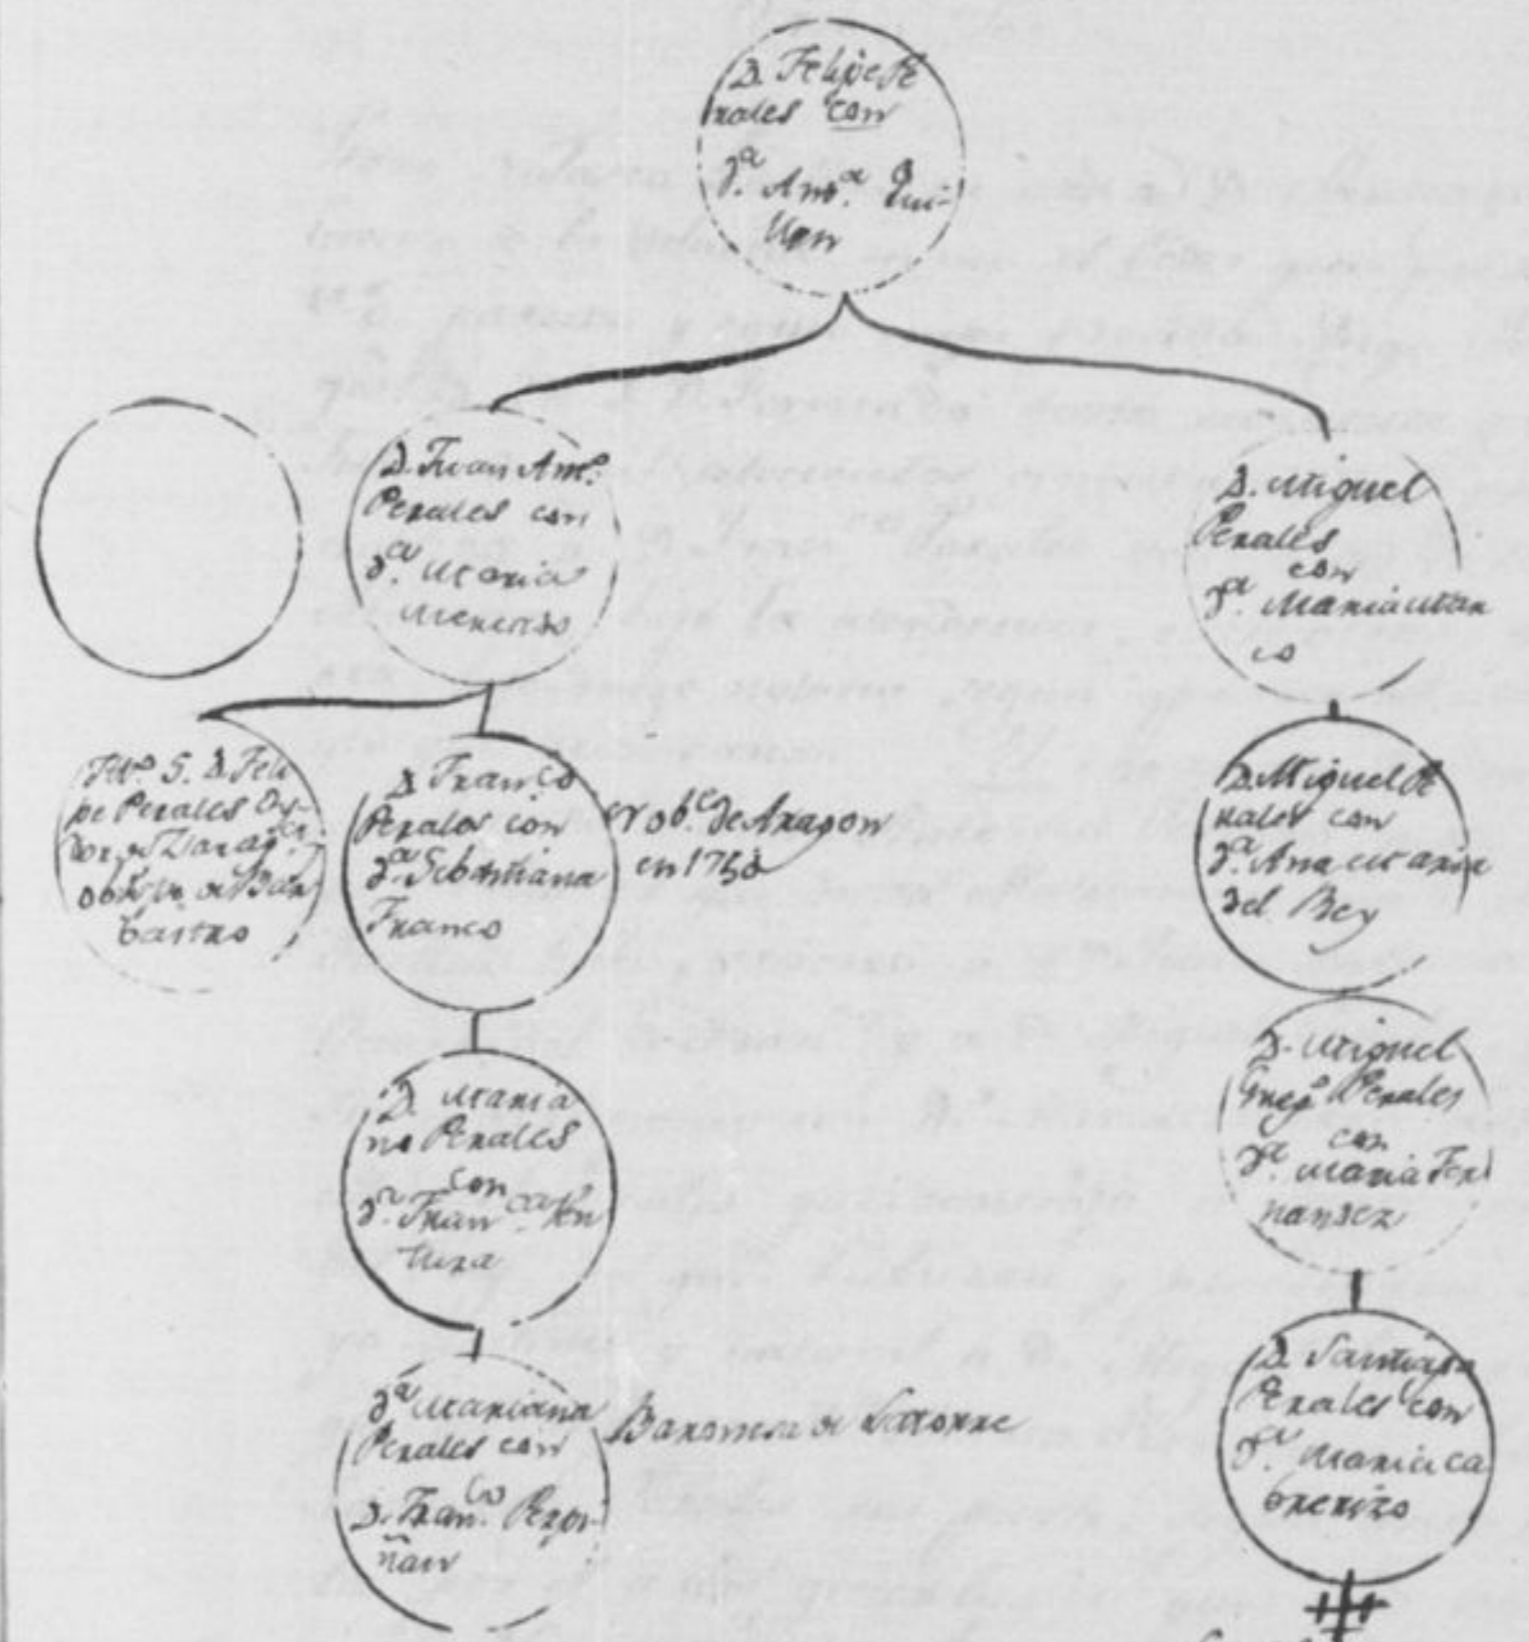 D. Felipe Pe
rales con
d.ª Ant.ª Gui-
llen
D. Juan Ant.º
Perales con
d.ª Maria
D. Miguel
Perales
con
d.ª Maria
Ill.º S. D. Feli
pe Perales
obispo de Bar
bastro
D. Fran.co
Perales con
d.ª Sebastiana
Franco
de Aragon
en
D. Miguel Pe
rales con
d.ª Ana Maria
del Rey
D. Maria
no Perales
con
d.ª Fran.ca
D. Miguel
Greg.º Perales
con
d.ª Maria Fer
nandez
d.ª Mariana
Perales con
D. Fran.co Perpi
ñan
Baronesa de Latorre
D. Santiago
Perales con
d.ª Maria Ca
brerizo